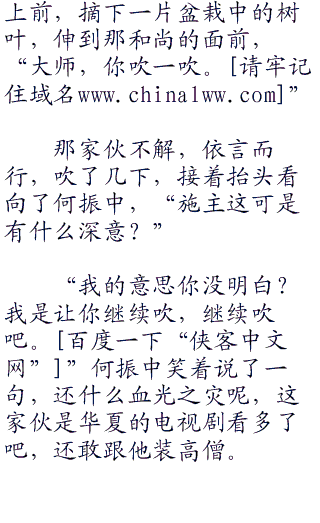 上前，摘下一片盆栽中的树
叶，伸到那和尚的面前，
“大师，你吹一吹。[请牢记
住域名www.china1ww.com]”
那家伙不解，依言而
行，吹了几下，接着抬头看
向了何振中，“施主这可是
有什么深意？”
“我的意思你没明白？
我是让你继续吹，继续吹
吧。[百度一下“侠客中文
网”]”何振中笑着说了一
句，还什么血光之灾呢，这
家伙是华夏的电视剧看多了
吧，还敢跟他装高僧。